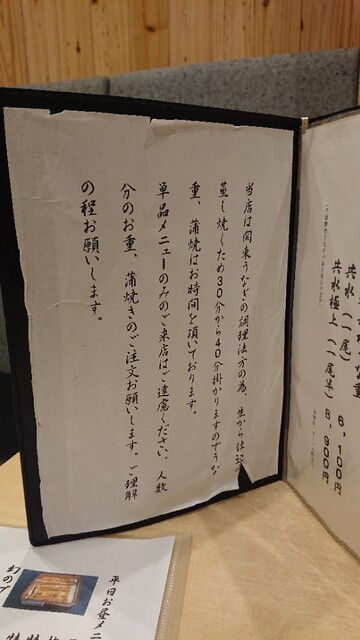 当店は関東うなぎの調理法の為、生から仕込み
蒸し焼くため30分から40分掛かりますのでうな
重、蒲焼はお時間を頂いております。
単品メニューのみのご来店はご遠慮ください、人数
分のお重、蒲焼きのご注文お願いします。ご理解
の程お願いします。
共水(一尾) 8,100円
共水極上(一尾半) 8,900円
平日お昼メニ
幻の